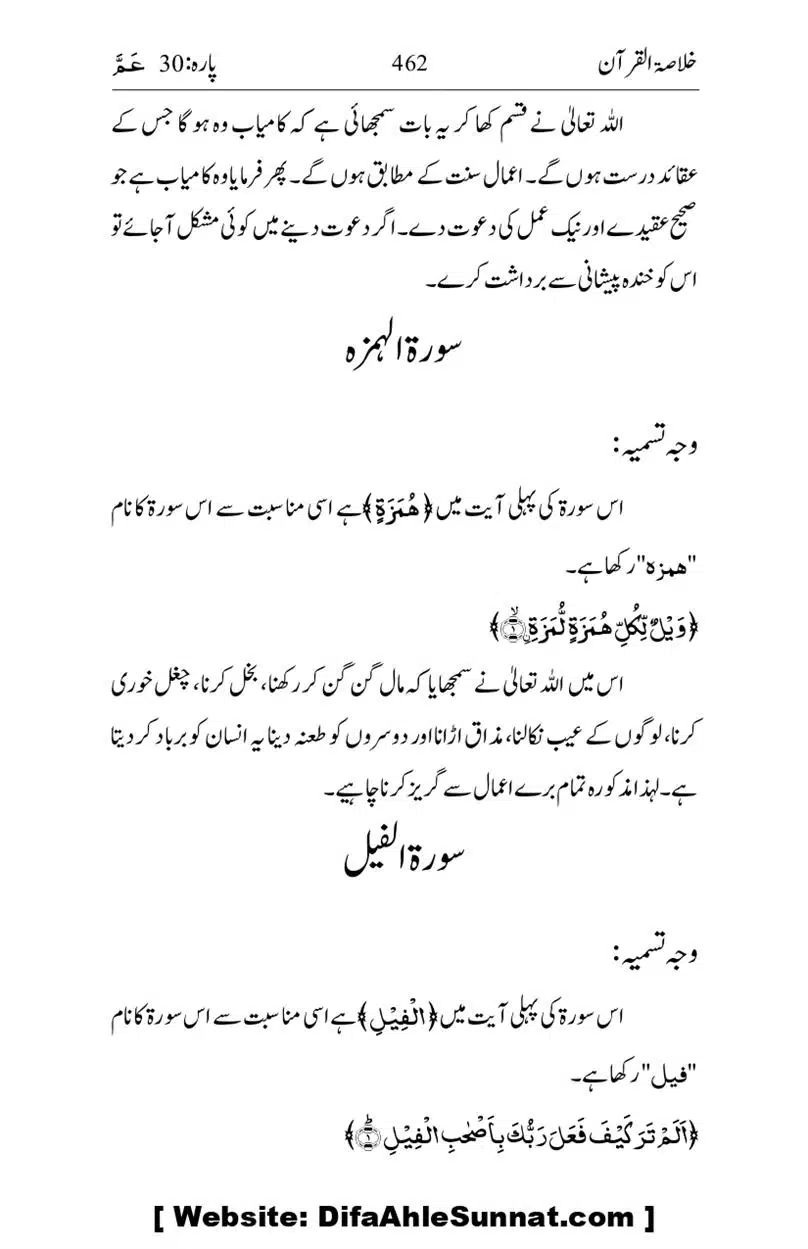 خلاصۃ القرآن 462 پارہ:30 عَمَّ
اللہ تعالیٰ نے قسم کھا کر یہ بات سمجھائی ہے کہ کامیاب وہ ہو گا جس کے
عقائد درست ہوں گے۔ اعمال سنت کے مطابق ہوں گے۔ پھر فرمایا وہ کامیاب ہے جو
صحیح عقیدے اور نیک عمل کی دعوت دے۔ اگر دعوت دینے میں کوئی مشکل آ جائے تو
اس کو خندہ پیشانی سے برداشت کرے۔
سورۃ الہمزہ
وجہ تسمیہ:
اس سورۃ کی پہلی آیت میں ﴿هُمَزَةٍ﴾ ہے اسی مناسبت سے اس سورۃ کا نام
"همزہ" رکھا ہے۔
﴿وَيْلٌ لِّكُلِّ هُمَزَةٍ لُّمَزَةِ ۙ۝۱﴾
اس میں اللہ تعالیٰ نے سمجھایا کہ مال گن گن کر رکھنا، بخل کرنا، چغل خوری
کرنا، لوگوں کے عیب نکالنا، مذاق اڑانا اور دوسروں کو طعنہ دینا یہ انسان کو برباد کر دیتا
ہے۔ لہذا مذکورہ تمام برے اعمال سے گریز کرنا چاہیے۔
سورۃ الفیل
وجہ تسمیہ:
اس سورۃ کی پہلی آیت میں ﴿الْفِيْلِ﴾ ہے اسی مناسبت سے اس سورۃ کا نام
"فیل" رکھا ہے۔
﴿اَلَمْ تَرَ كَيْفَ فَعَلَ رَبُّكَ بِاَصْحٰبِ الْفِيْلِ ؕ۝۱﴾
[ Website: DifaAhleSunnat.com ]